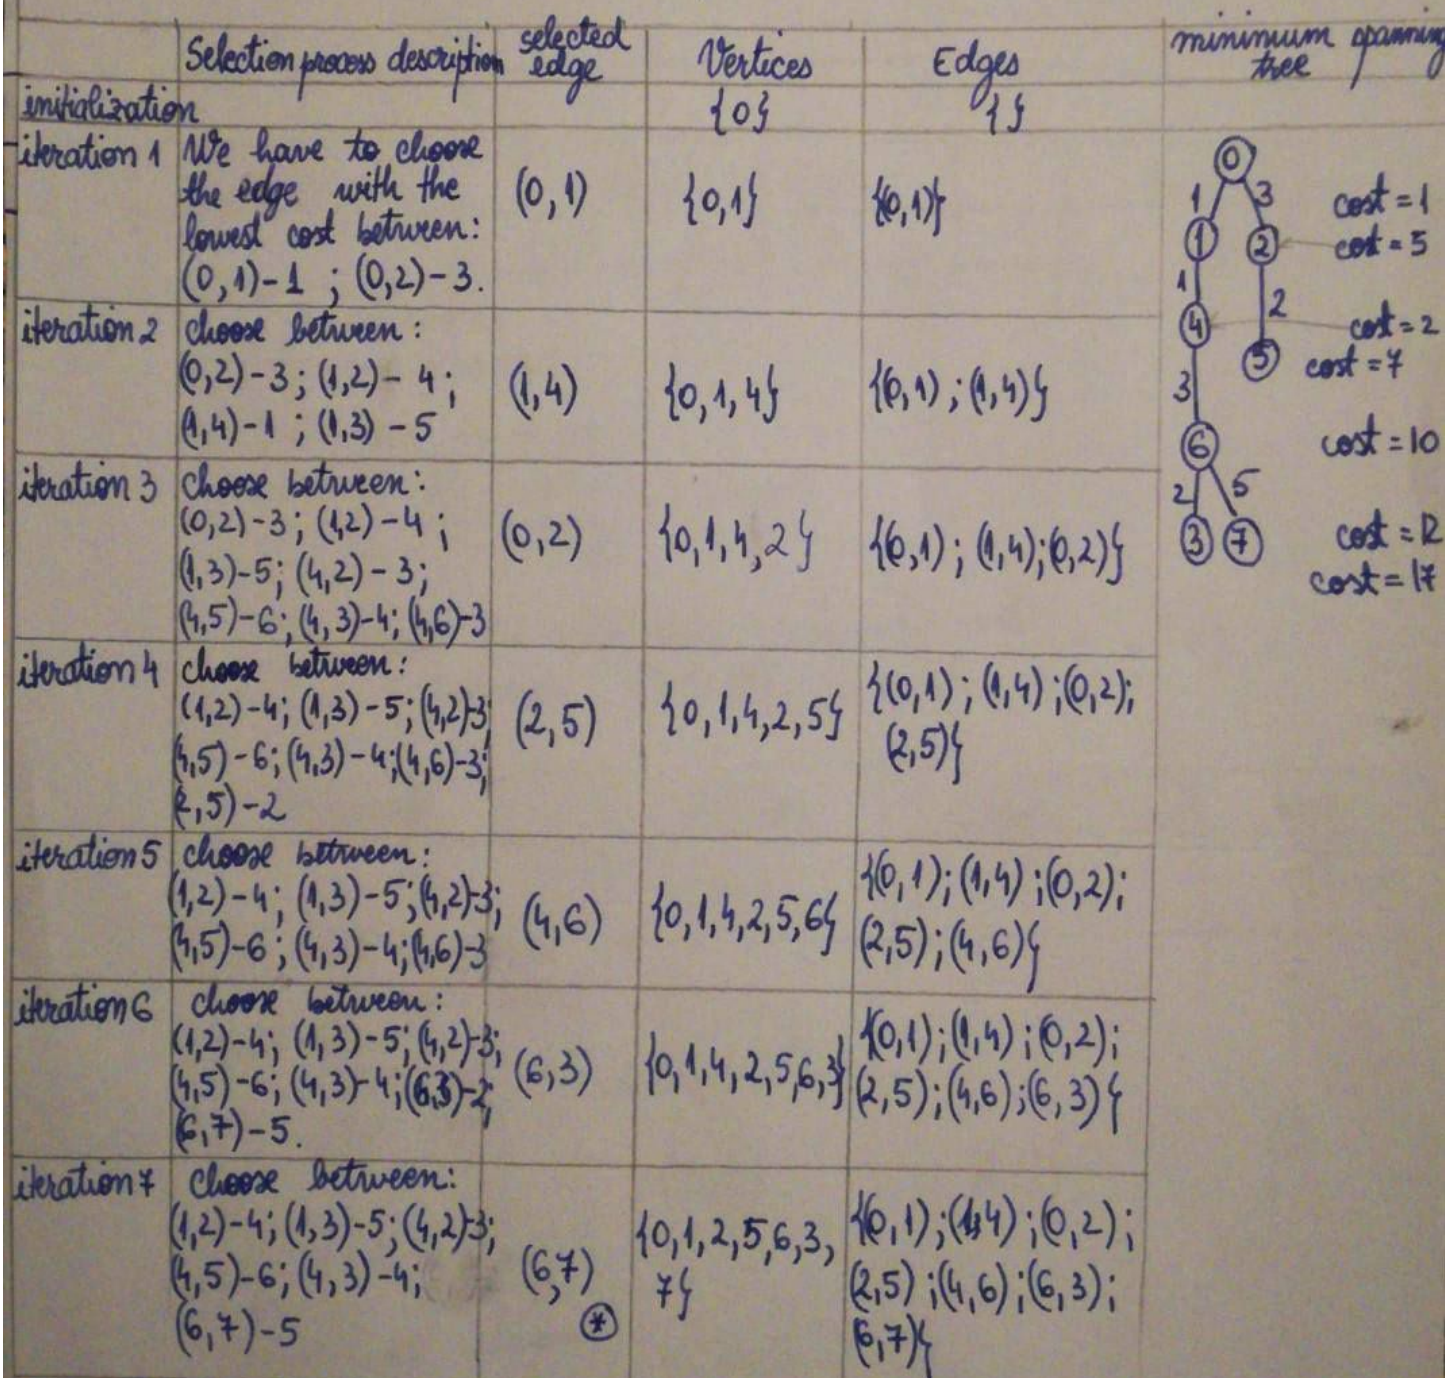 Selection process description
selected
edge
Vertices
Edges
minimum spanning
tree
initialization
{0}
{ }
iteration 1
We have to choose
the edge with the
lowest cost between:
(0,1)-1 ; (0,2)-3.
(0,1)
{0,1}
{(0,1)}
iteration 2
choose between:
(0,2)-3; (1,2)-4;
(1,4)-1 ; (1,3)-5
(1,4)
{0,1,4}
{(0,1) ; (1,4)}
iteration 3
choose between:
(0,2)-3; (1,2)-4;
(1,3)-5; (4,2)-3;
(4,5)-6; (4,3)-4; (4,6)-3
(0,2)
{0,1,4,2}
{(0,1) ; (1,4);(0,2)}
iteration 4
choose between:
(1,2)-4; (1,3)-5; (4,2)-3;
(4,5)-6; (4,3)-4; (4,6)-3;
(2,5)-2
(2,5)
{0,1,4,2,5}
{(0,1) ; (1,4) ;(0,2);
(2,5)}
iteration 5
choose between:
(1,2)-4; (1,3)-5; (4,2)-3;
(4,5)-6; (4,3)-4; (4,6)-3
(4,6)
{0,1,4,2,5,6}
{(0,1); (1,4) ;(0,2);
(2,5); (4,6)}
iteration 6
choose between:
(1,2)-4; (1,3)-5; (4,2)-3;
(4,5)-6; (4,3)-4; (6,3)-2;
(6,7)-5.
(6,3)
{0,1,4,2,5,6,3}
{(0,1); (1,4) ; (0,2);
(2,5); (4,6); (6,3)}
iteration 7
choose between:
(1,2)-4; (1,3)-5; (4,2)-3;
(4,5)-6; (4,3)-4;
(6,7)-5
(6,7)
*
{0,1,2,5,6,3,
7}
{(0,1); (1,4) ; (0,2);
(2,5) ; (4,6); (6,3);
(6,7)}
0
1 3
cost = 1
1 2
cost = 5
1
2
4
cost = 2
5
cost = 7
3
6
cost = 10
2 5
3 7
cost = 12
cost = 17